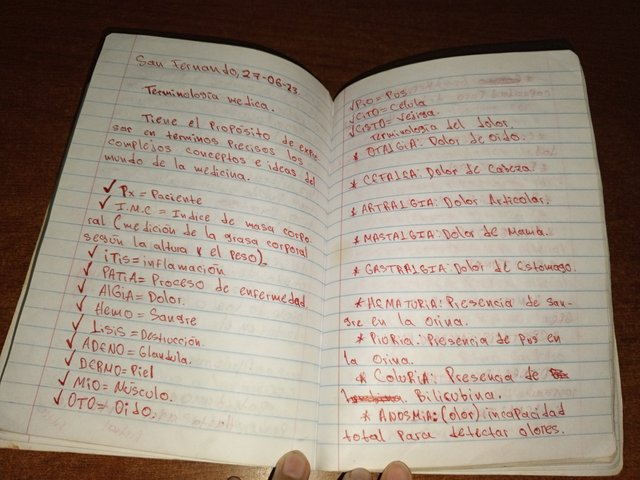 San Fernando, 27-06-23
Terminología medica.
Tiene el propósito de expre
sar en terminos precisos los
complejos conceptos e ideas del
mundo de la medicina.
✓ Px = Paciente
✓ I.M.C = Indice de masa corpo
ral (medición de la grasa corporal
según la altura y el peso).
✓ iTis = inflamación
✓ PATiA = Proceso de enfermedad
✓ AlGiA = Dolor.
✓ Hemo = Sangre
✓ Lisis = Destrucción.
✓ ADENO = Glandula.
✓ DERMO = Piel
✓ Mio = Músculo.
✓ OTO = Oido.
✓ Pio = Pus
✓ CiTO = Celula
✓ CisTO = Vejiga.
Terminología del dolor.
* OTALGIA: Dolor de Oido.
* CEFALGIA: Dolor de Cabeza.
* ARTRALGIA: Dolor Articular.
* MASTALGIA: Dolor de Mama.
* GASTRALGIA: Dolor de Estomago.
* HEMATURIA: Presencia de san-
gre en la orina.
* PiURIA: Presencia de Pus en
la orina.
* COLURIA: Presencia de
Bilirubina.
* ANOSMIA: (olor) incapacidad
total para detectar olores.